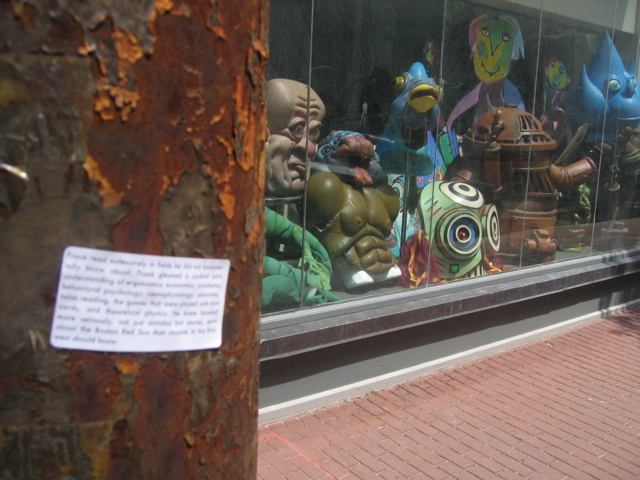 Frank read extensively in fields he did not fundamen-
tally know about. Frank gleaned a useful
understanding of ergonomics, economics,
behavioural psychology, neurophysiology,
reading, the games that were played with
words, and theoretical physics. He knew baseball
more seriously, not just statistics but stories and
about the Boston Red Sox than anyone in the Mid
west should know.